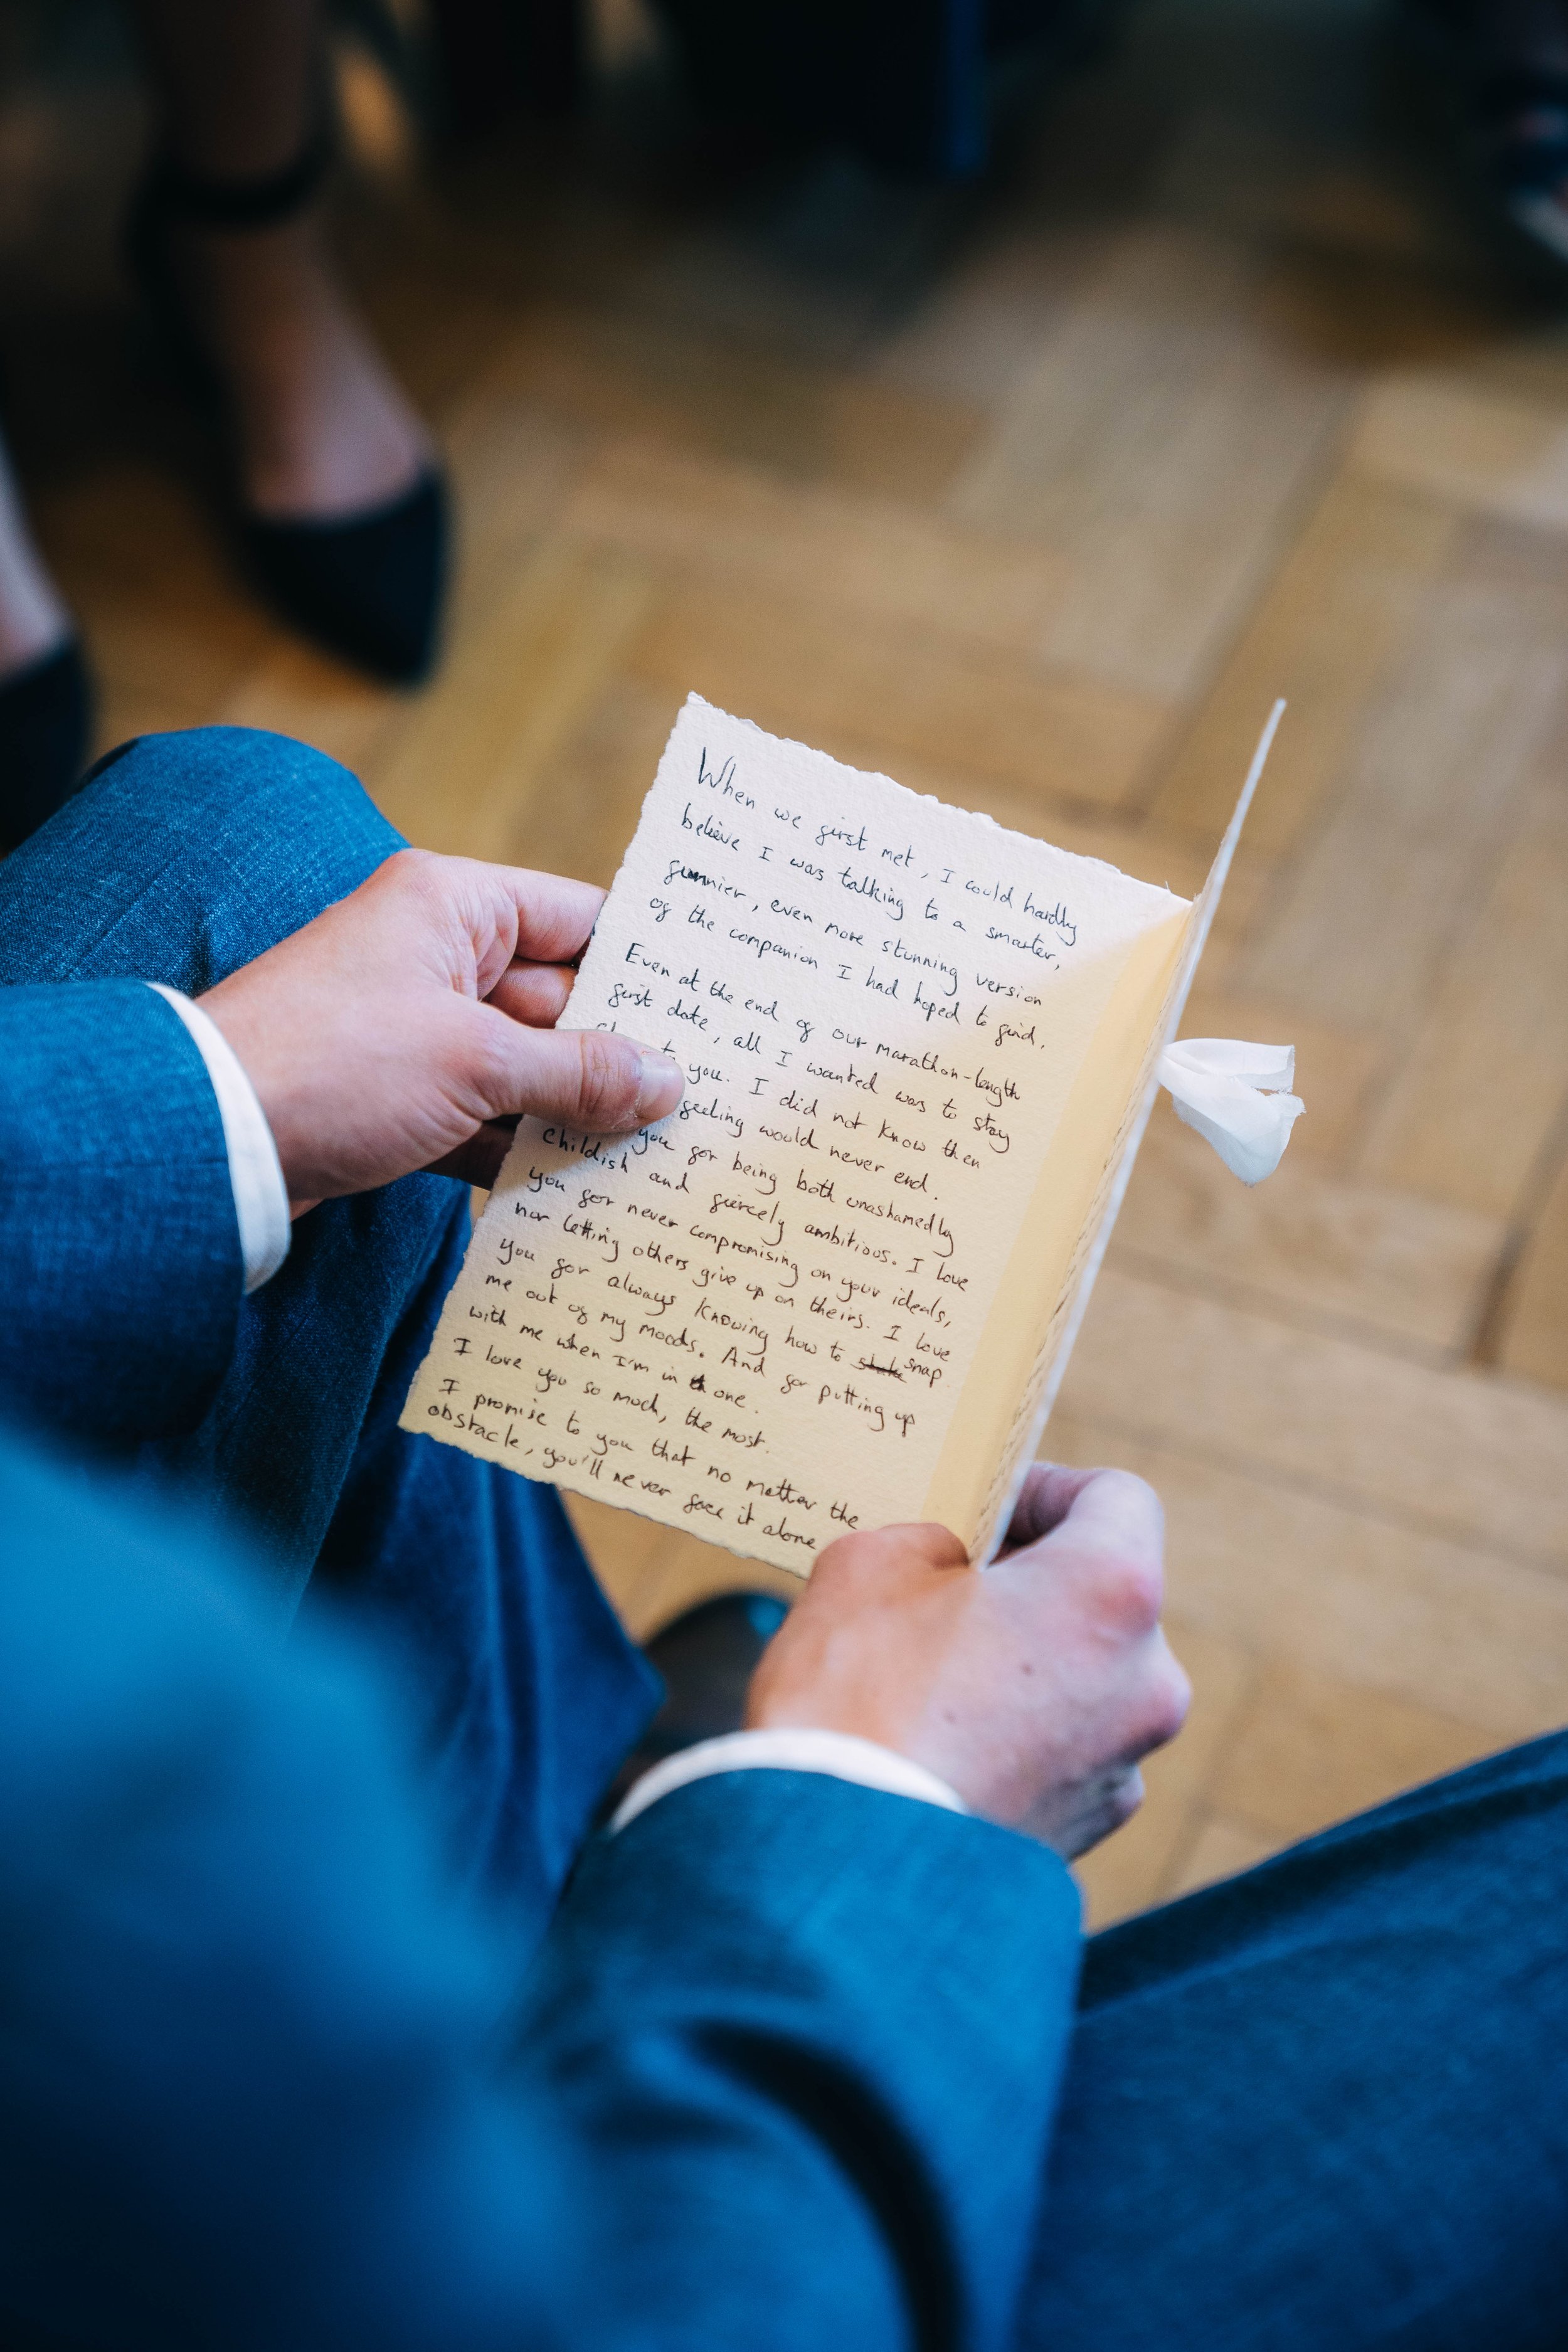 When we first met, I could hardly
believe I was talking to a smarter,
funnier, even more stunning version
of the companion I had hoped to find.
Even at the end of our marathon-length
first date, all I wanted was to stay
to you. I did not know then
feeling would never end.
you for being both unashamedly
childish and fiercely ambitious. I love
you for never compromising on your ideals,
nor letting others give up on theirs. I love
you for always knowing how to snap
me out of my moods. And for putting up
with me when I'm in one.
I love you so much, the most.
I promise to you that no matter the
obstacle, you'll never face it alone